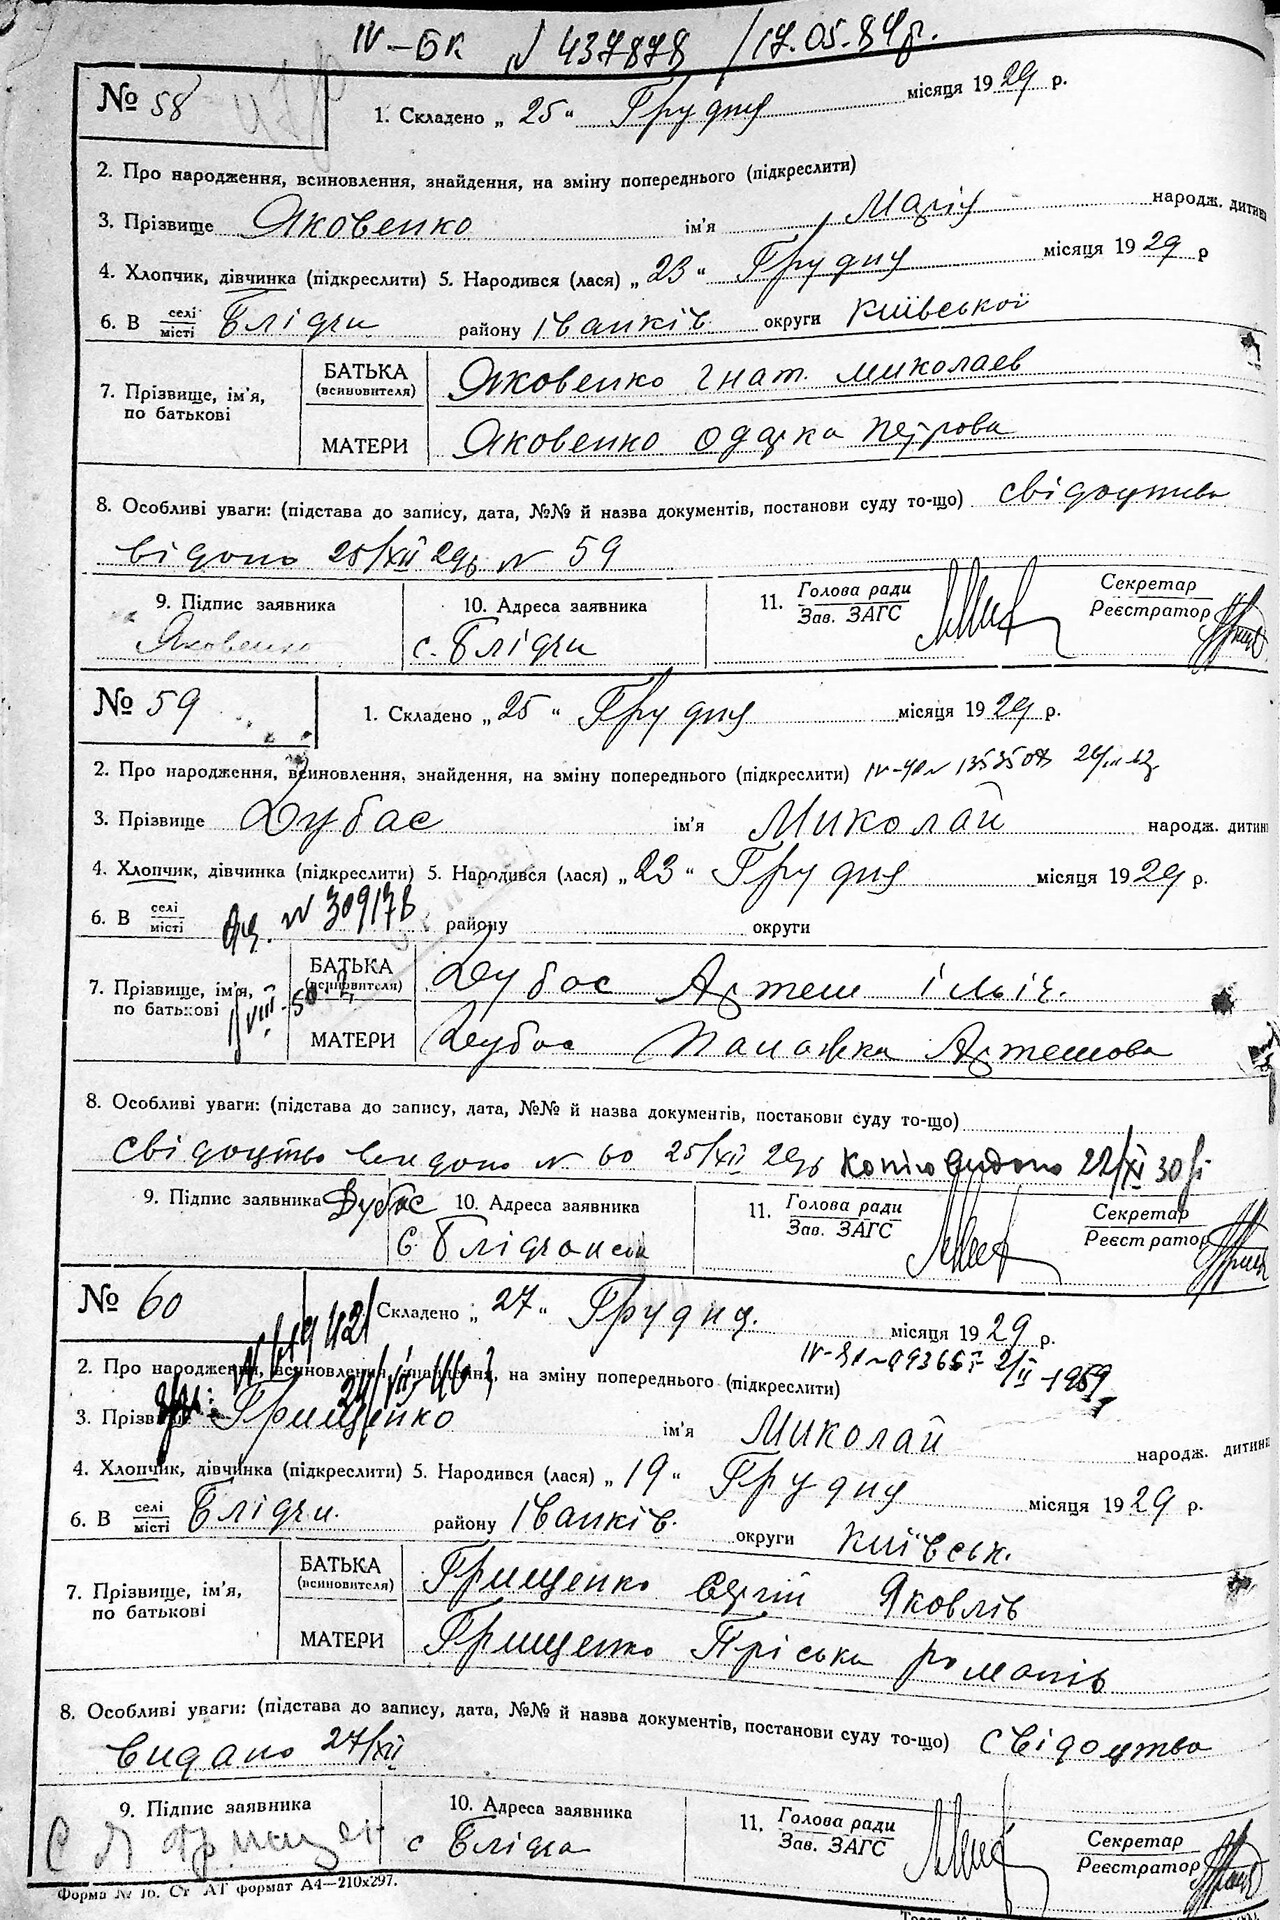 IV – БК № 437878 / 17.05.84р.
№ 58
1. Складено „ 25 “ Грудня місяця 1929 р.
2. Про народження, всиновлення, знайдення, на зміну попереднього (підкреслити)
3. Прізвище Яковенко ім'я Марія народж. дитини
4. Хлопчик, дівчинка (підкреслити) 5. Народився (лася) „ 23 “ Грудня місяця 1929 р
6. В селі місті Блідчи району Іванків. округи Київської
7. Прізвище, ім'я, по батькові
БАТЬКА (всиновителя) Яковенко Гнат. Миколаєв
МАТЕРИ Яковенко Одарка Петрова
8. Особливі уваги: (підстава до запису, дата, №№ й назва документів, постанови суду то-що) свідоцтво
відоно 25/XII 29р № 59
9. Підпис заявника Яковенко
10. Адреса заявника с. Блідчи
11. Голова ради Зав. ЗАГС
Секретар Реєстратор
№ 59
1. Складено „ 25 “ Грудня місяця 1929 р.
2. Про народження, всиновлення, знайдення, на зміну попереднього (підкреслити)
3. Прізвище Дубас ім'я Миколай народж. дитини
4. Хлопчик, дівчинка (підкреслити) 5. Народився (лася) „ 23 “ Грудня місяця 1929 р.
6. В селі місті № 309178 району округи
7. Прізвище, ім'я, по батькові
БАТЬКА (всиновителя) Дубас Артем Ільіч.
МАТЕРИ Дубас Палажка Артемова
8. Особливі уваги: (підстава до запису, дата, №№ й назва документів, постанови суду то-що)
свідоцтво видоно № 60 25/XII 29р Копію видоно 22/XI 30р
9. Підпис заявника Дубас
10. Адреса заявника с. Блідчанськ
11. Голова ради Зав. ЗАГС
Секретар Реєстратор
№ 60
Складено „ 27 “ Грудня. місяця 1929 р.
2. Про народження, всиновлення, знайдення, на зміну попереднього (підкреслити)
3. Прізвище Грищенко ім'я Миколай народж. дитини
4. Хлопчик, дівчинка (підкреслити) 5. Народився (лася) „ 19 “ Грудня місяця 1929 р.
6. В селі місті Блідчи. району Іванків. округи Київськ.
7. Прізвище, ім'я, по батькові
БАТЬКА (всиновителя) Грищенко Сергій Яковлів
МАТЕРИ Грищенко Пріська Романів
8. Особливі уваги: (підстава до запису, дата, №№ й назва документів, постанови суду то-що) свідоцтво
видано 27/XII
9. Підпис заявника С Я Грищен
10. Адреса заявника с Блідча
11. Голова ради Зав. ЗАГС
Секретар Реєстратор
Форма № 16. Ст АТ формат А4—210х297.